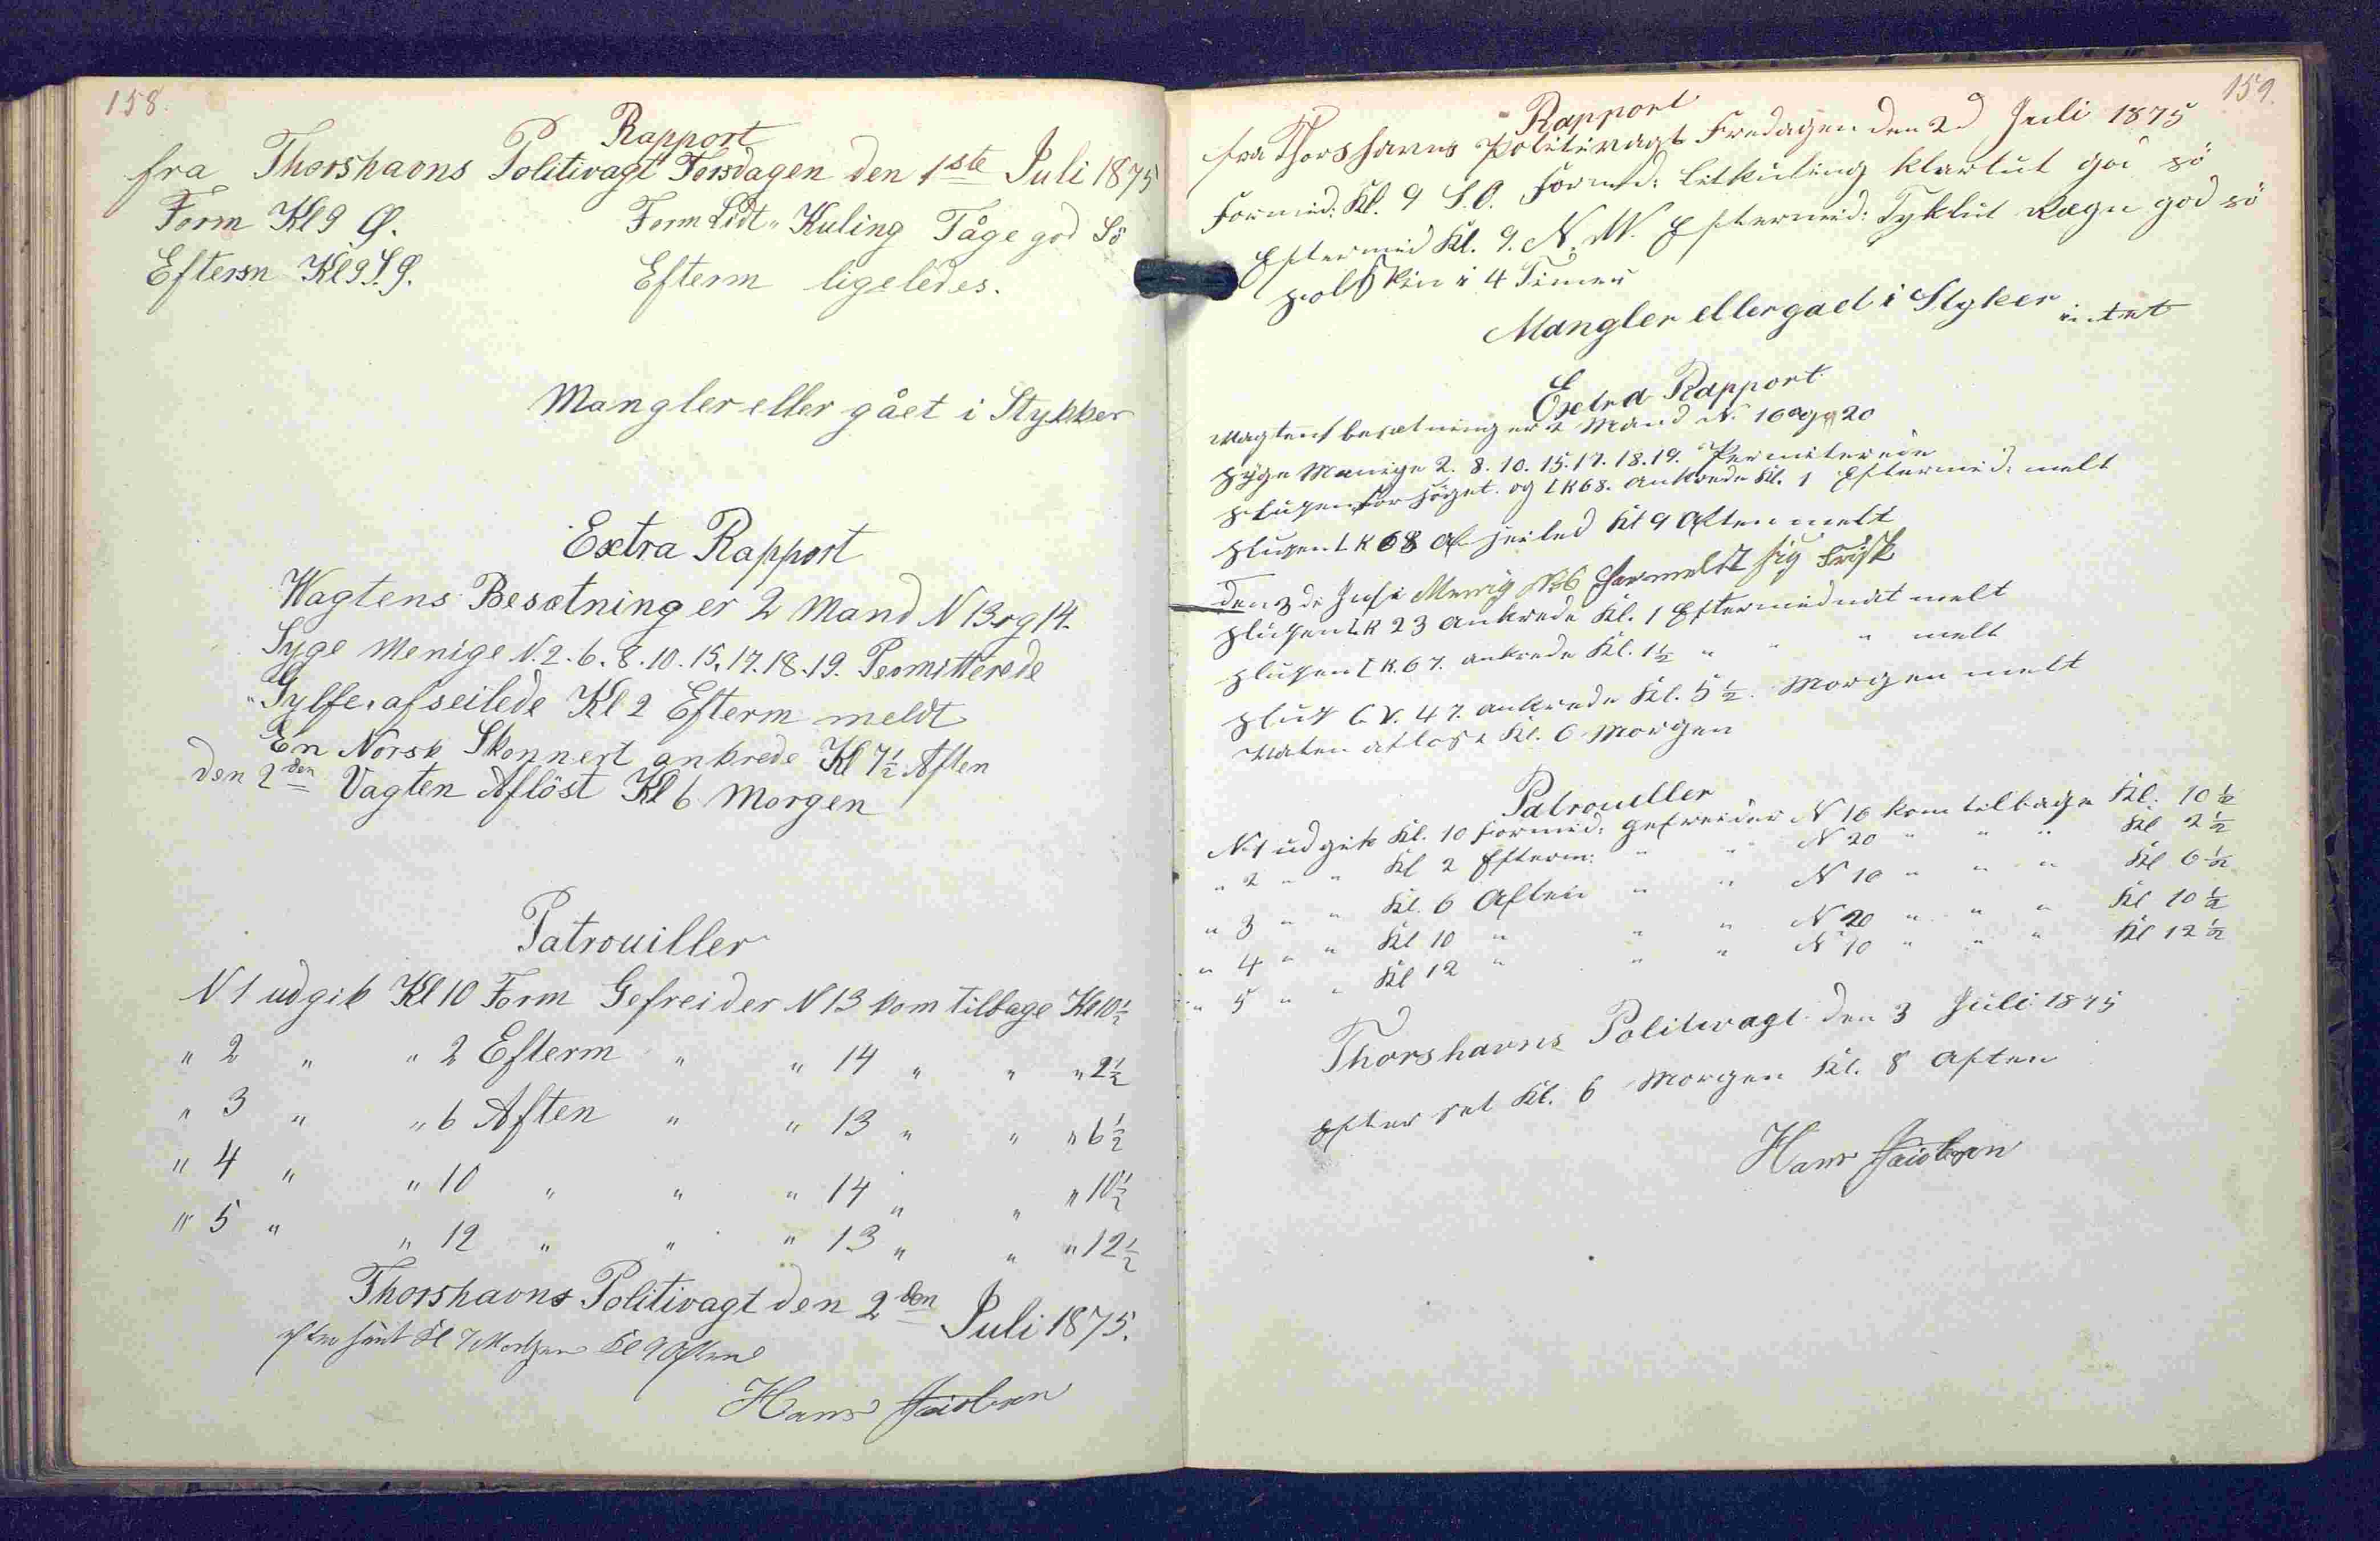 158.
Rapport
fra Thorshavns Politivagt Torsdagen den 1ste Juli 1875
Form Kl 9 Ø. Form Lidt " Kuling Tåge god Sö
Efterm Kl 9 S.Ø. Efterm ligeledes.
Mangler eller gået i Stykker
Extra Rapport
Wagtens Besætning er 2 Mand N 13 og 14.
Syge Menige N. 2. 6. 8. 10. 15. 17. 18. 19. Permitterede
"Sylfe" afseilede Kl 2 Efterm meldt
En Norsk Skonnert ankrede Kl 7½ Aften
den 2den Vagten Aflöst Kl 6 Morgen
Patrouiller
N 1 udgik Kl 10 Form Gefreider N 13 kom tilbage Kl 10½
" 2 " " 2 Efterm " " 14 " " " 2½
" 3 " " 6 Aften " " 13 " " " 6½
" 4 " " 10 " " " 14 " " " 10½
" 5 " " 12 " " " 13 " " " 12½
Thorshavns Politivagt den 2den Juli 1875.
Kl 7 Morgen Kl 9 Aften
Hans Jacobsen
159.
Rapport
fra Thorshavns Politivagt Fredagen den 2d Juli 1875
Formid: Kl. 9 S.O. Formid: Litkuling klarlut god sö
Eftermid Kl. 9. N.W. Eftermid: Tyklut Regn god sö
solskin i 4 Timer
Mangler eller gaet i Styker intet
Extra Rapport
Wagtens besætning er 2 Mand N. 16 og 20
Syge Menige 2. 8. 10. 15. 17. 18. 19. Permiterede
Slupen og LK 68. ankrede Kl. 1 Eftermid: melt
Slupen LK 68 af seiled Kl 9 Aften melt
den 3de Juli Menig No 6 har meldt sig Frisk
Slupen LK 23 ankrede Kl. 1 Eftermidnat melt
Slupen LK. 67. ankrede Kl. 1½ " " " melt
Slup C.V. 47. ankrede Kl. 5½. Morgen melt
Vaten aflöst Kl. 6 Morgen
Patrouller
N 1 udgik Kl. 10 formid: gefreider N 16 kom tilbage Kl. 10½
" 2 " " Kl 2 Efterm: " " N 20 " " " Kl 2½
" 3 " " Kl. 6 Aften " " N 16 " " " Kl 6½
" 4 " " Kl 10 " " " N 20 " " " Kl 10½
" 5 " " Kl 12 " " " N 16 " " " Kl 12½
Thorshavns Politivagt den 3 Juli 1875
Efter set Kl. 6 Morgen Kl. 8 Aften
Hans Jacobsen